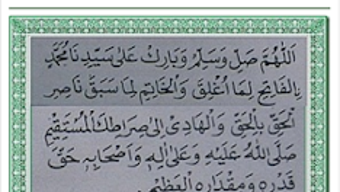 اَللّٰهُمَّ صَلِّ وَسَلِّمْ وَبَارِكْ عَلٰى سَيِّدِنَا مُحَمَّدٍ
بِالفَاتِحِ لِمَا اُغْلِقَ وَالْخَاتِمِ لِمَا سَبَقَ نَاصِرِ
الْحَقِّ بِالْحَقِّ وَالْهَادِى اِلٰى صِرَاطِكَ الْمُسْتَقِيْمِ
صَلَّى اللهُ عَلَيْهِ وَعَلٰى اٰلِهِ وَاَصْحَابِهِ حَقَّ
قَدْرِهِ وَمِقْدَارِهِ الْعَظِيْمِ